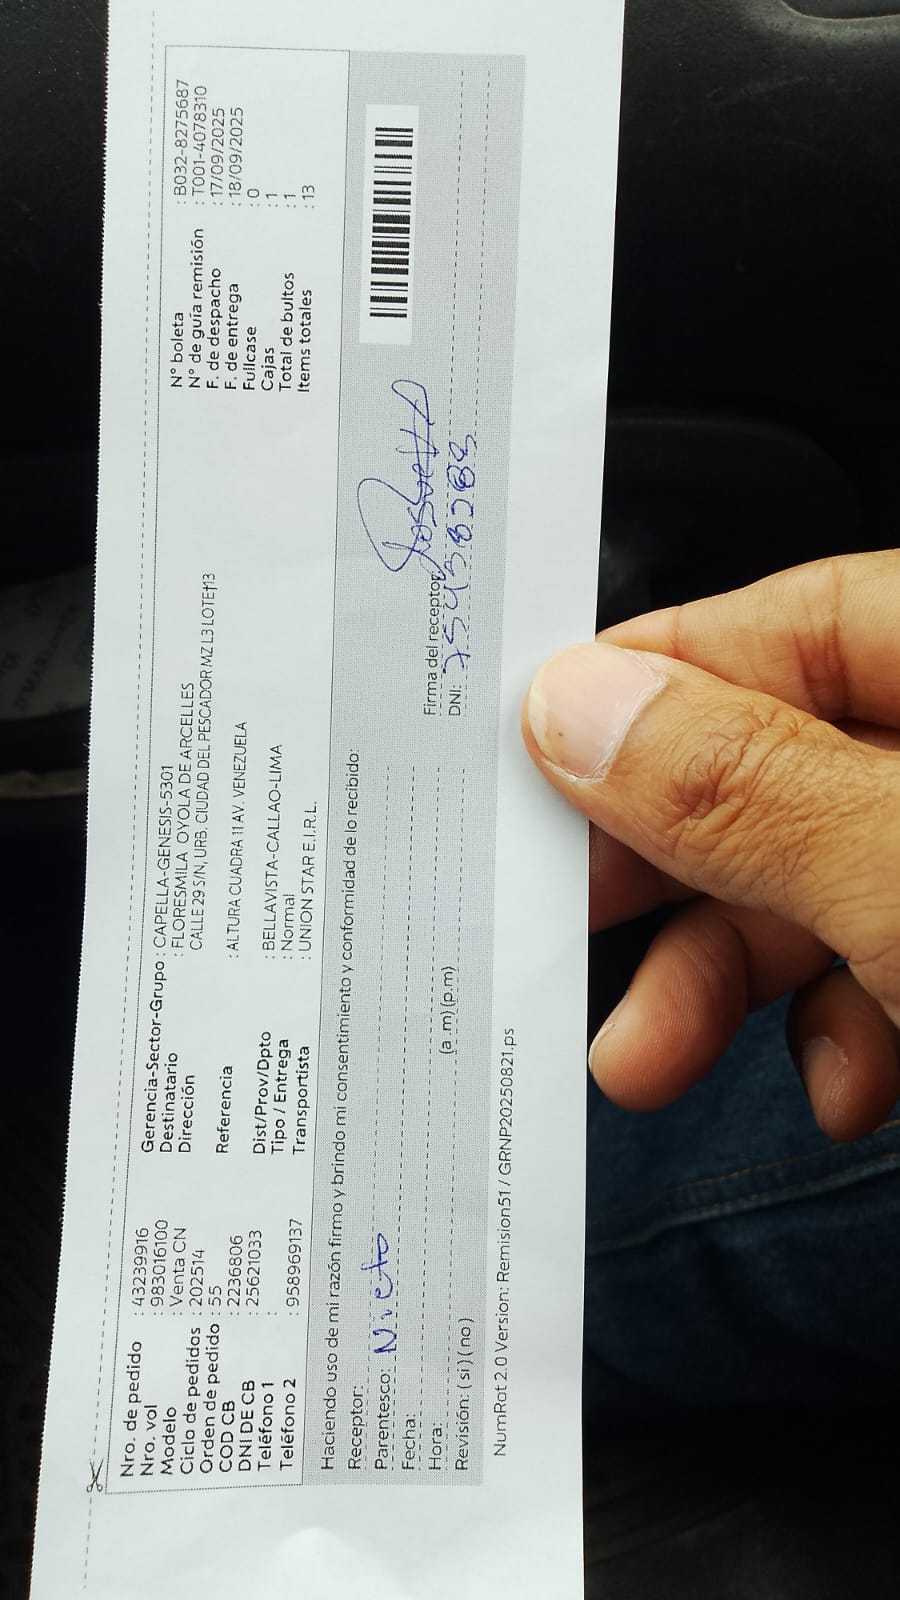 Nro. de pedido : 43239916
Nro. vol : 983016100
Modelo : Venta CN
Ciclo de pedidos : 202514
Orden de pedido : 55
COD CB : 2236806
DNI DE CB : 25621033
Teléfono 1 :
Teléfono 2 : 958969137
Gerencia-Sector-Grupo : CAPELLA-GENESIS-5301
Destinatario : FLORESMILA OYOLA DE ARCELLES
Dirección CALLE 29 S/N, URB. CIUDAD DEL PESCADOR MZ L3 LOTE 13
Referencia : ALTURA CUADRA 11 AV. VENEZUELA
Dist/Prov/Dpto : BELLAVISTA-CALLAO-LIMA
Tipo / Entrega : Normal
Transportista : UNION STAR E.I.R.L.
N° boleta : B032-8275687
N° de guía remisión : T001-4078310
F. de despacho : 17/09/2025
F. de entrega : 18/09/2025
Fullcase : 0
Cajas : 1
Total de bultos : 1
Items totales : 13
Haciendo uso de mi razón firmo y brindo mi consentimiento y conformidad de lo recibido:
Receptor:
Parentesco: Nieto
Fecha:
Hora: (a .m) (p.m)
Revisión: ( si ) ( no )
Firma del receptor:
DNI:
NumRot 2.0 Version: Remision51 / GRNP20250821.ps